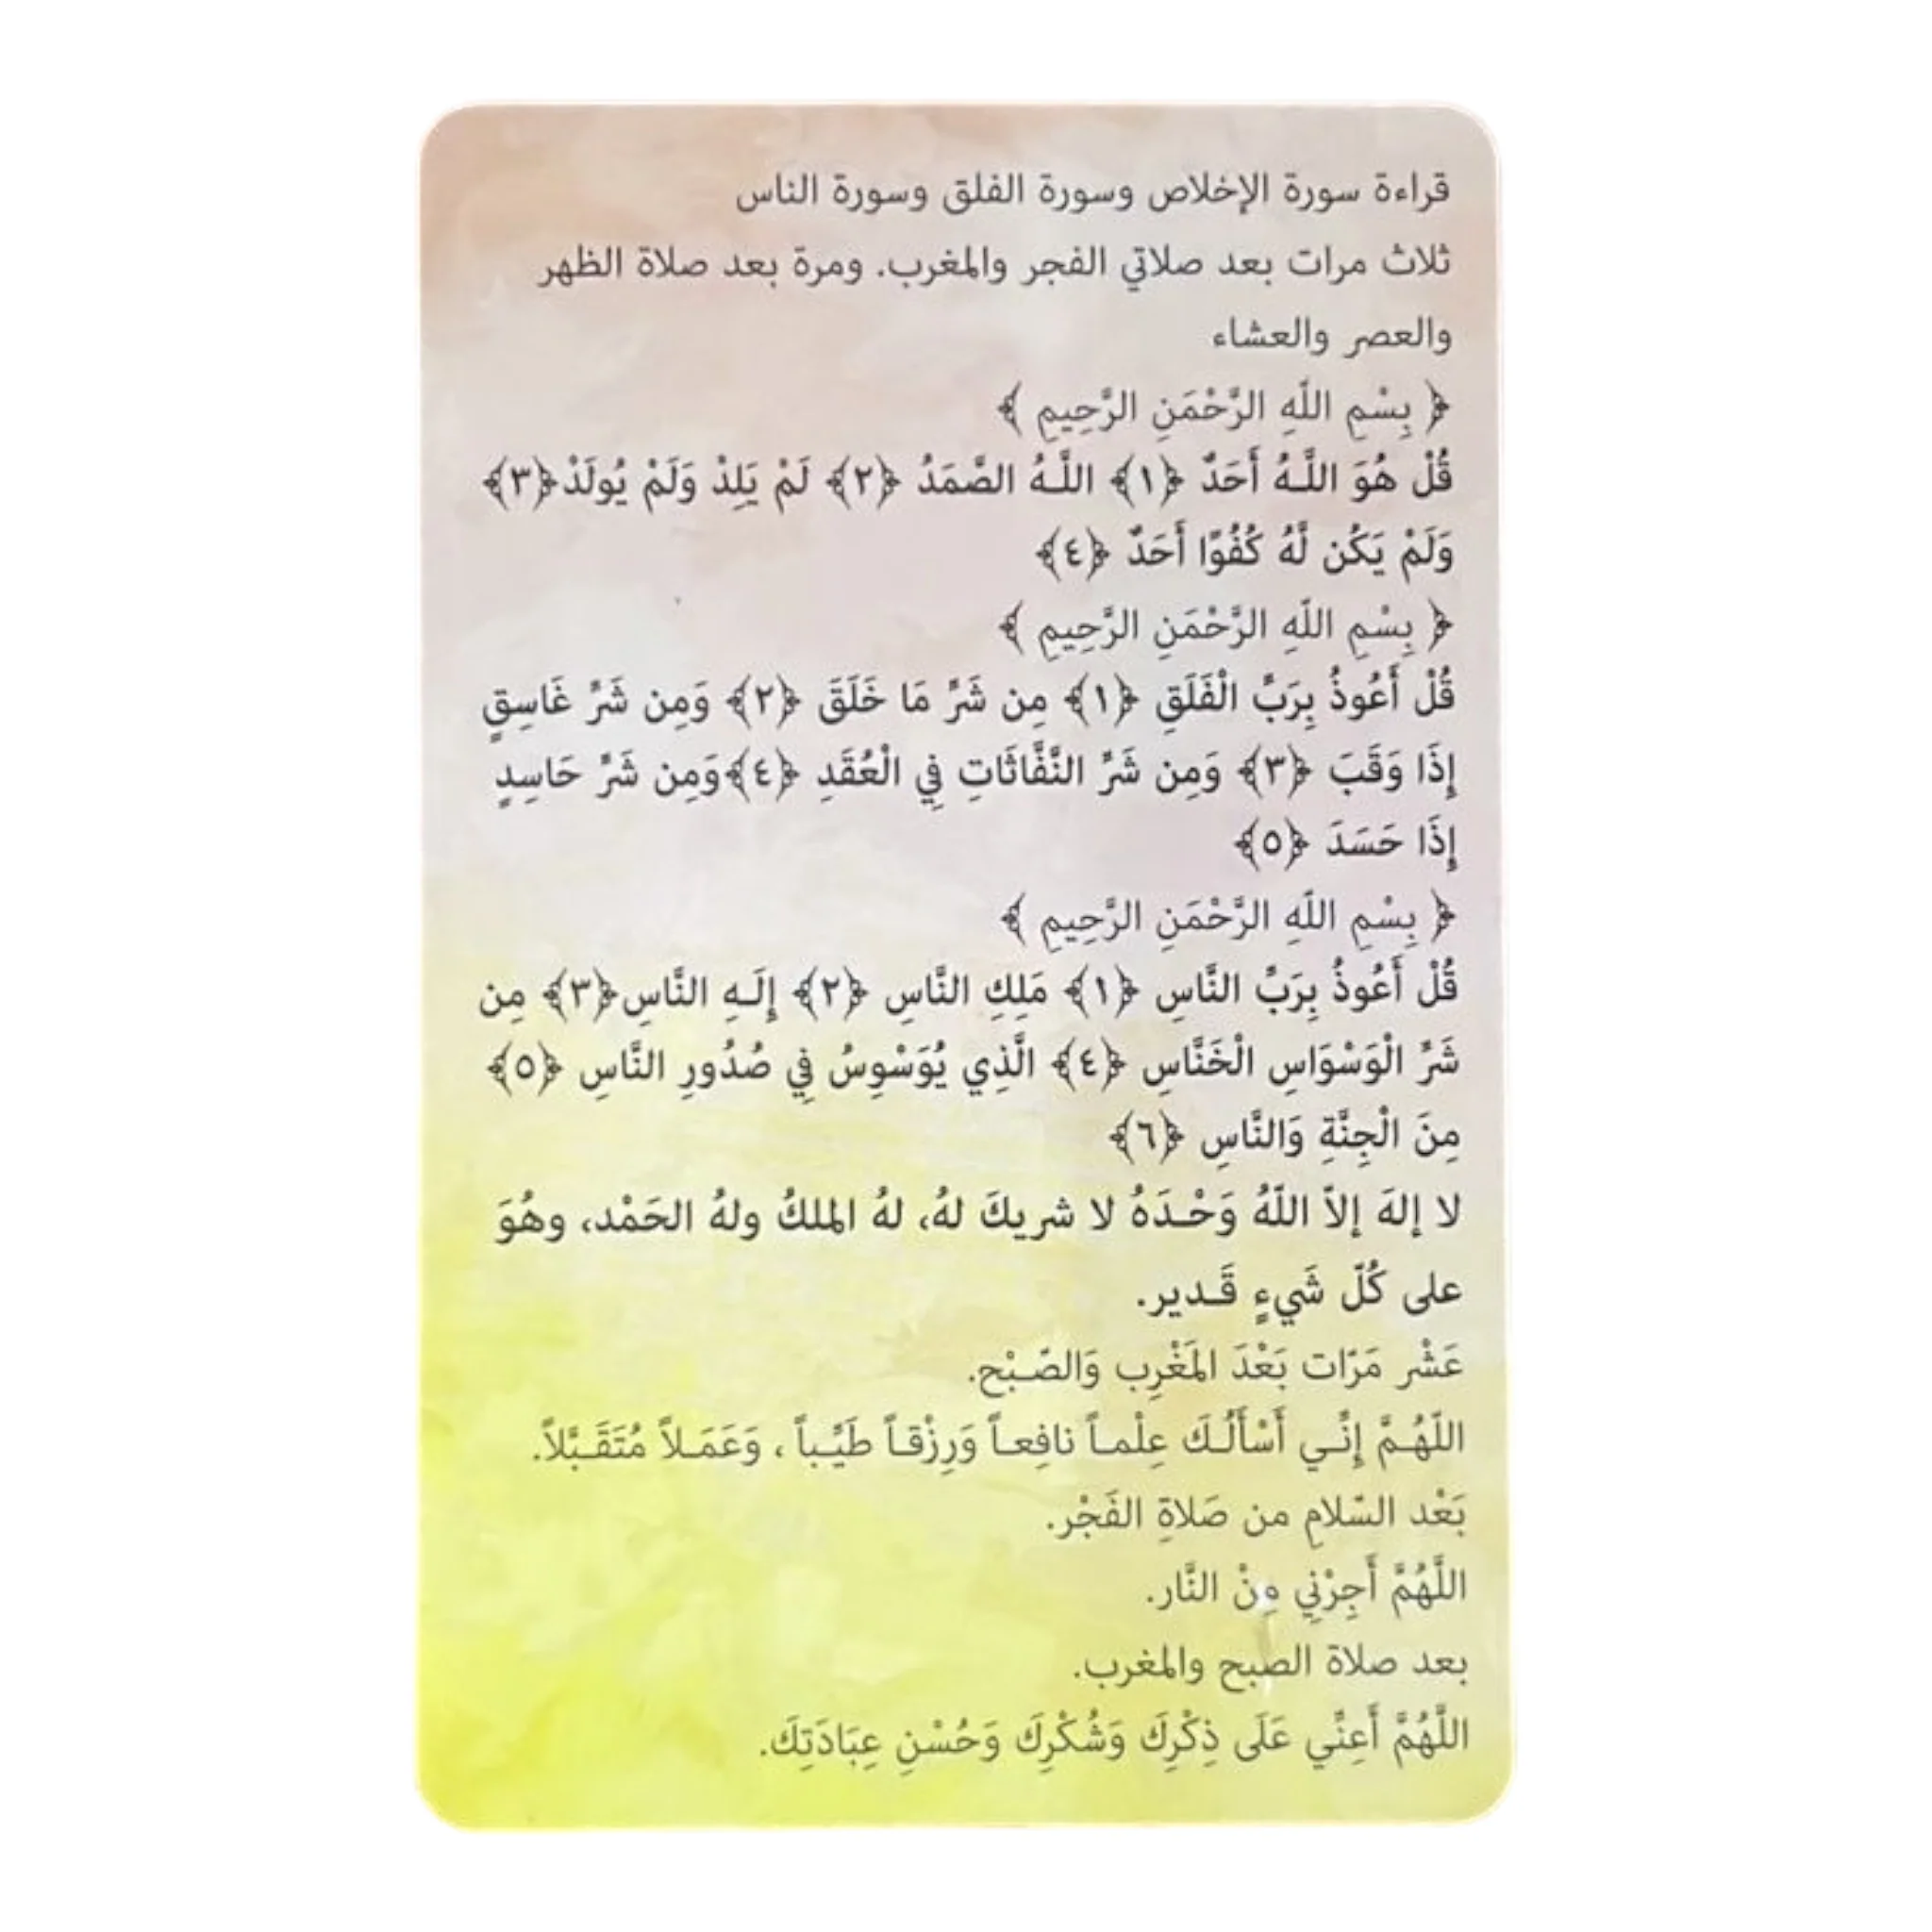 قراءة سورة الإخلاص وسورة الفلق وسورة الناس
ثلاث مرات بعد صلاتي الفجر والمغرب. ومرة بعد صلاة الظهر
والعصر والعشاء
﴿ بِسْمِ اللَّهِ الرَّحْمَنِ الرَّحِيمِ ﴾
قُلْ هُوَ اللَّـهُ أَحَدٌ ﴿١﴾ اللَّـهُ الصَّمَدُ ﴿٢﴾ لَمْ يَلِدْ وَلَمْ يُولَدْ﴿٣﴾
وَلَمْ يَكُن لَّهُ كُفُوًا أَحَدٌ ﴿٤﴾
﴿ بِسْمِ اللَّهِ الرَّحْمَنِ الرَّحِيمِ ﴾
قُلْ أَعُوذُ بِرَبِّ الْفَلَقِ ﴿١﴾ مِن شَرِّ مَا خَلَقَ ﴿٢﴾ وَمِن شَرِّ غَاسِقٍ
إِذَا وَقَبَ ﴿٣﴾ وَمِن شَرِّ النَّفَّاثَاتِ فِي الْعُقَدِ ﴿٤﴾وَمِن شَرِّ حَاسِدٍ
إِذَا حَسَدَ ﴿٥﴾
﴿ بِسْمِ اللَّهِ الرَّحْمَنِ الرَّحِيمِ ﴾
قُلْ أَعُوذُ بِرَبِّ النَّاسِ ﴿١﴾ مَلِكِ النَّاسِ ﴿٢﴾ إِلَـهِ النَّاسِ﴿٣﴾ مِن
شَرِّ الْوَسْوَاسِ الْخَنَّاسِ ﴿٤﴾ الَّذِي يُوَسْوِسُ فِي صُدُورِ النَّاسِ ﴿٥﴾
مِنَ الْجِنَّةِ وَالنَّاسِ ﴿٦﴾
لا إلهَ إلاّ اللّهُ وَحْـدَهُ لا شريكَ لهُ، لهُ الملكُ ولهُ الحَمْد، وهُوَ
على كُلّ شَيءٍ قَـدير.
عَشْر مَرّات بَعْدَ المَغْرِب وَالصّـبْح.
اللّهُـمَّ إِنِّـي أَسْأَلُـكَ عِلْمـاً نافِعـاً وَرِزْقـاً طَيِّـباً ، وَعَمَـلاً مُتَقَـبَّلاً.
بَعْد السّلامِ من صَلاةِ الفَجْر.
اللَّهُمَّ أَجِرْنِي مِنْ النَّار.
بعد صلاة الصبح والمغرب.
اللَّهُمَّ أَعِنِّي عَلَى ذِكْرِكَ وَشُكْرِكَ وَحُسْنِ عِبَادَتِكَ.